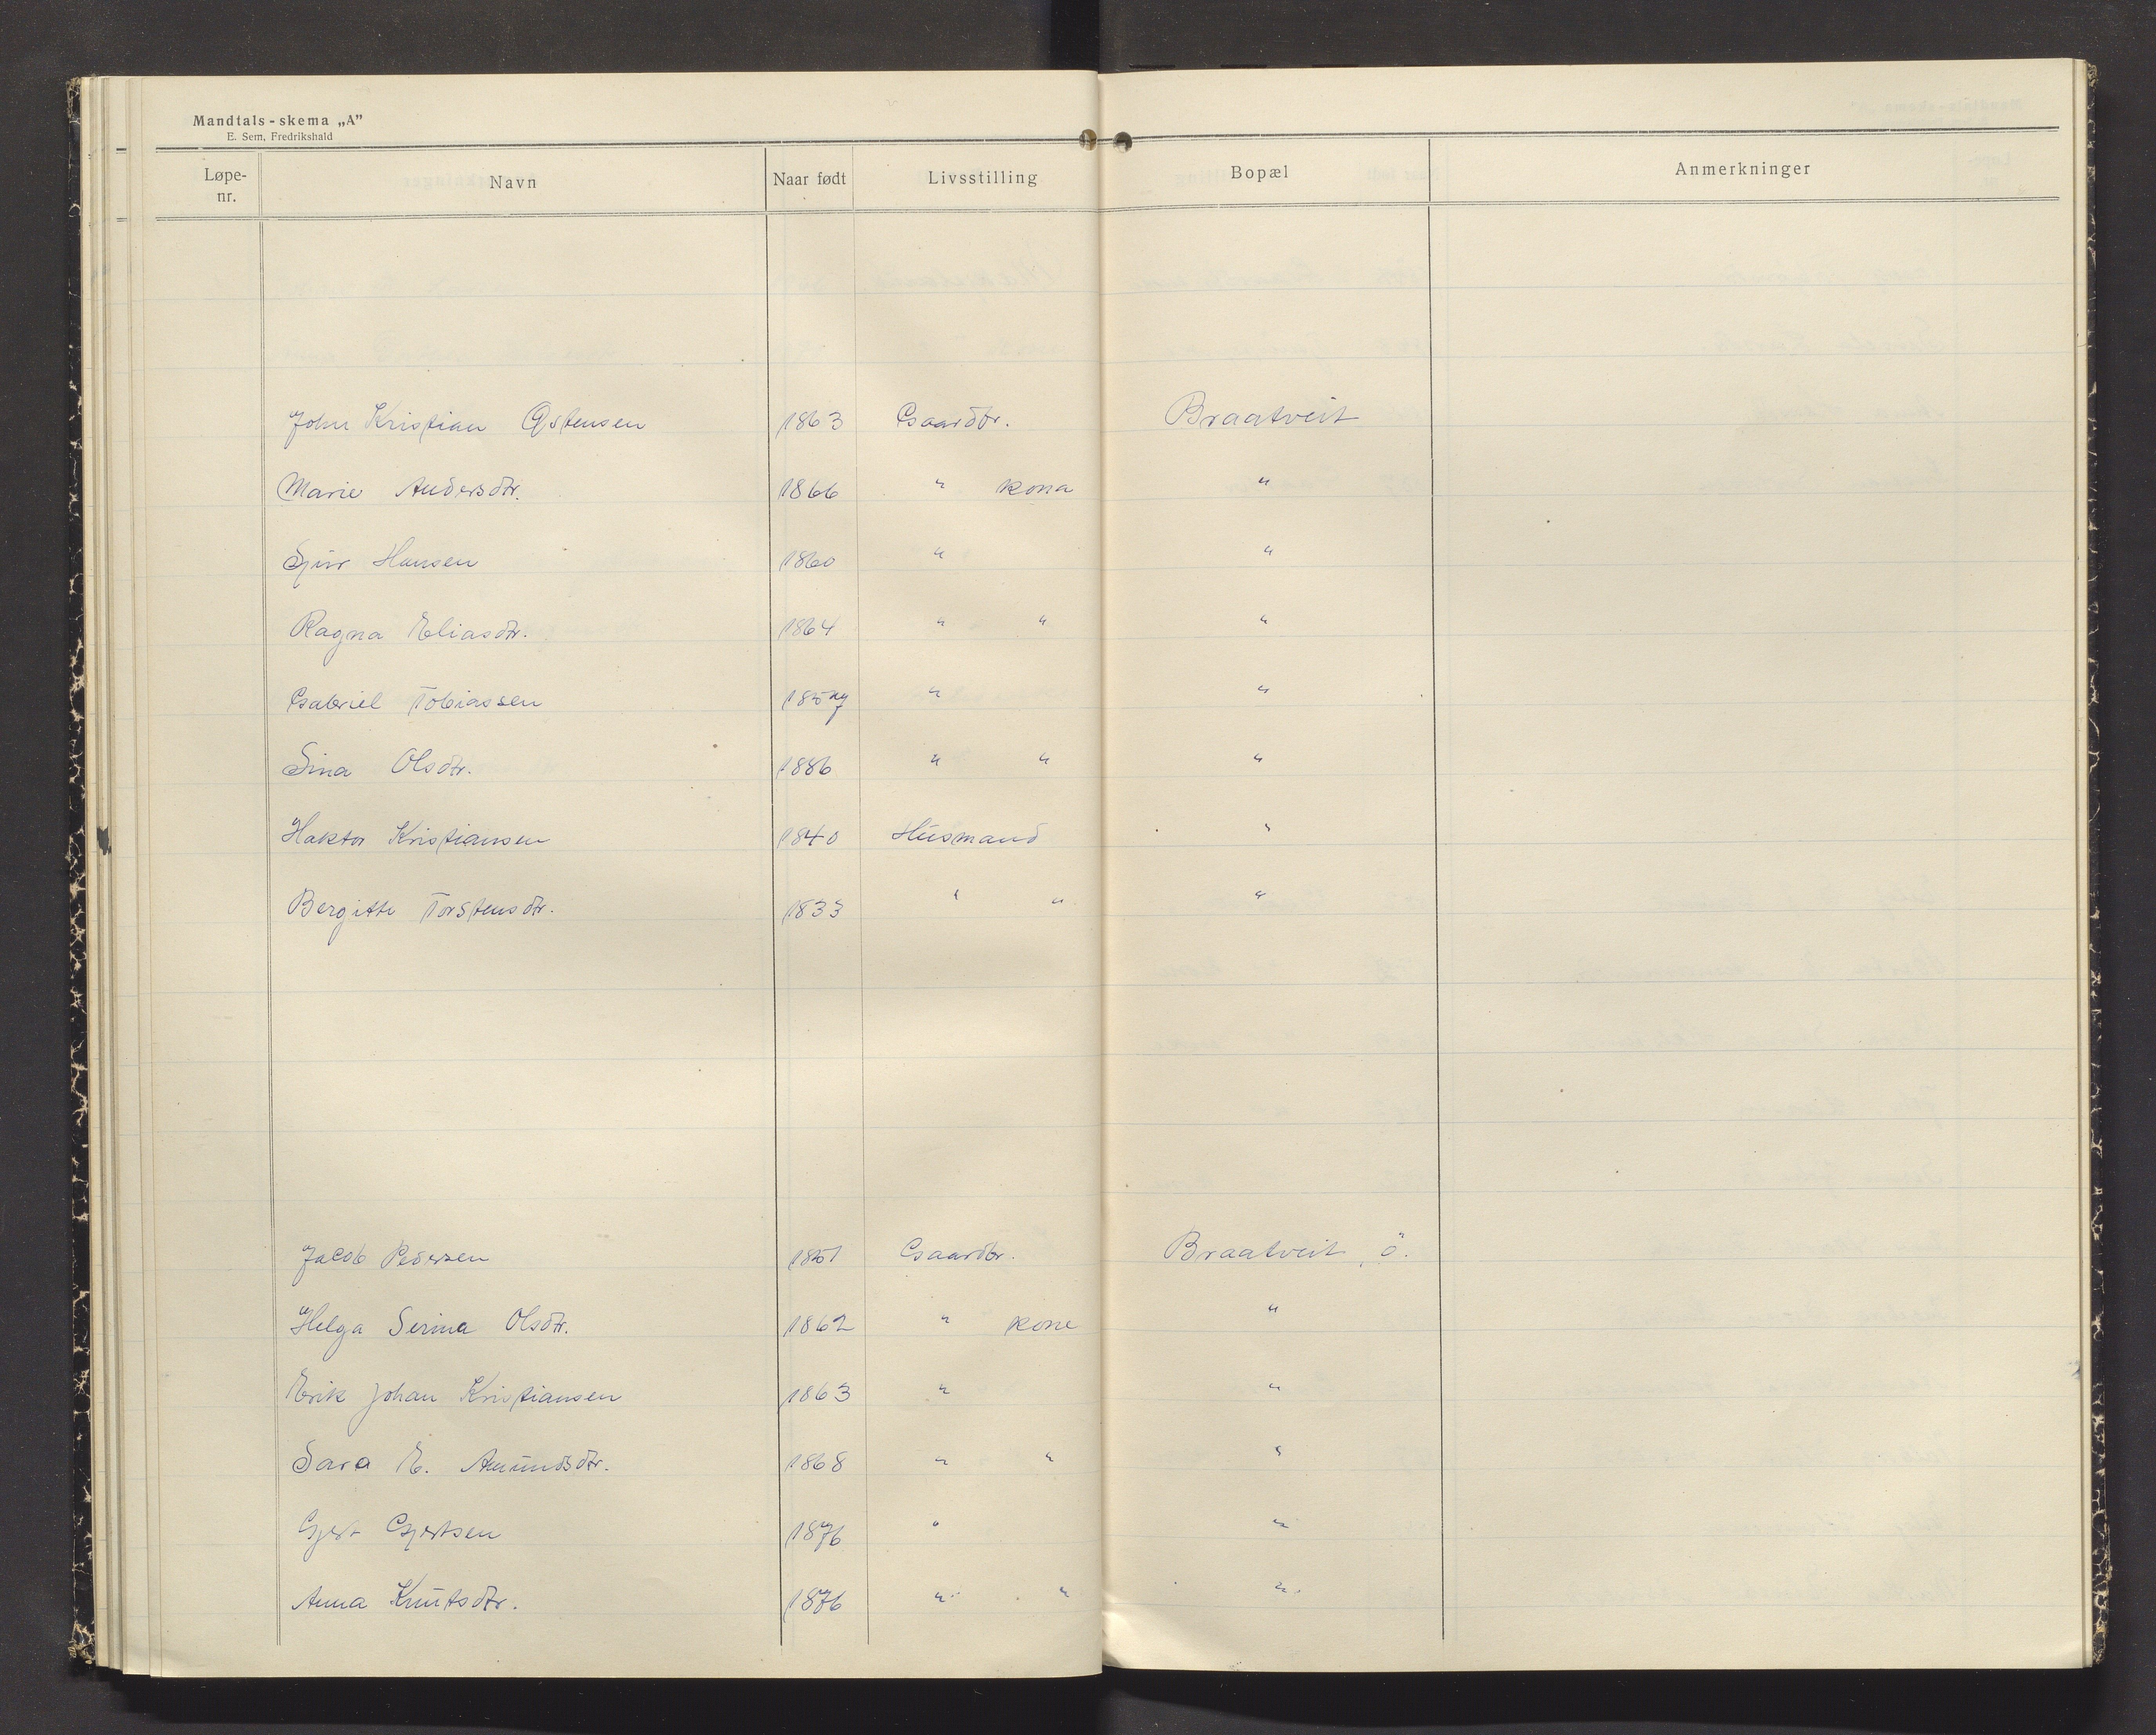 Mandtals-skema „A”
E. Sem, Fredrikshald
Løpe-nr. Navn Naar født Livsstilling Bopæl Anmerkninger
John Kristian Østensen 1863 Gaardbr. Braatveit
Marie Andersdtr. 1866 " kona "
Sjur Hansen 1860 " "
Ragna Eliasdtr. 1864 " " "
Gabriel Tobiassen 1857 " "
Sina Olsdtr. 1886 " " "
Haktor Kristiansen 1840 Husmand "
Bergitte Torstensdtr. 1833 " " "
Jacob Pedersen 1851 Gaardbr. Braatveit, ö.
Helga Serina Olsdtr. 1862 " kone "
Erik Johan Kristiansen 1863 " "
Sara E. Amundsdtr. 1868 " " "
Gjert Gjertsen 1876 " "
Anna Knutsdtr. 1876 " " "